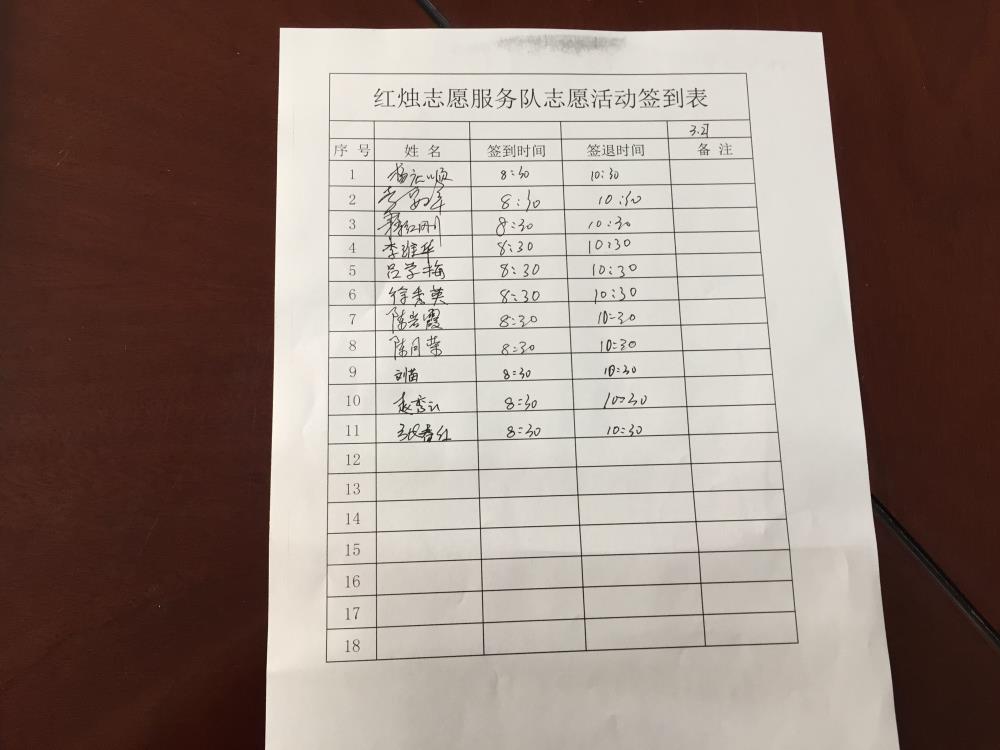 红烛志愿服务队志愿活动签到表
序号 姓名 签到时间 签退时间 备注
1 8:30 10:30
2 8:30 10:30
3 8:30 10:30
4 李维华 8:30 10:30
5 吕学梅 8:30 10:30
6 徐秀英 8:30 10:30
7 陈岩霞 8:30 10:30
8 陈月荣 8:30 10:30
9 刘苗 8:30 10:30
10 8:30 10:30
11 张春红 8:30 10:30
12
13
14
15
16
17
18